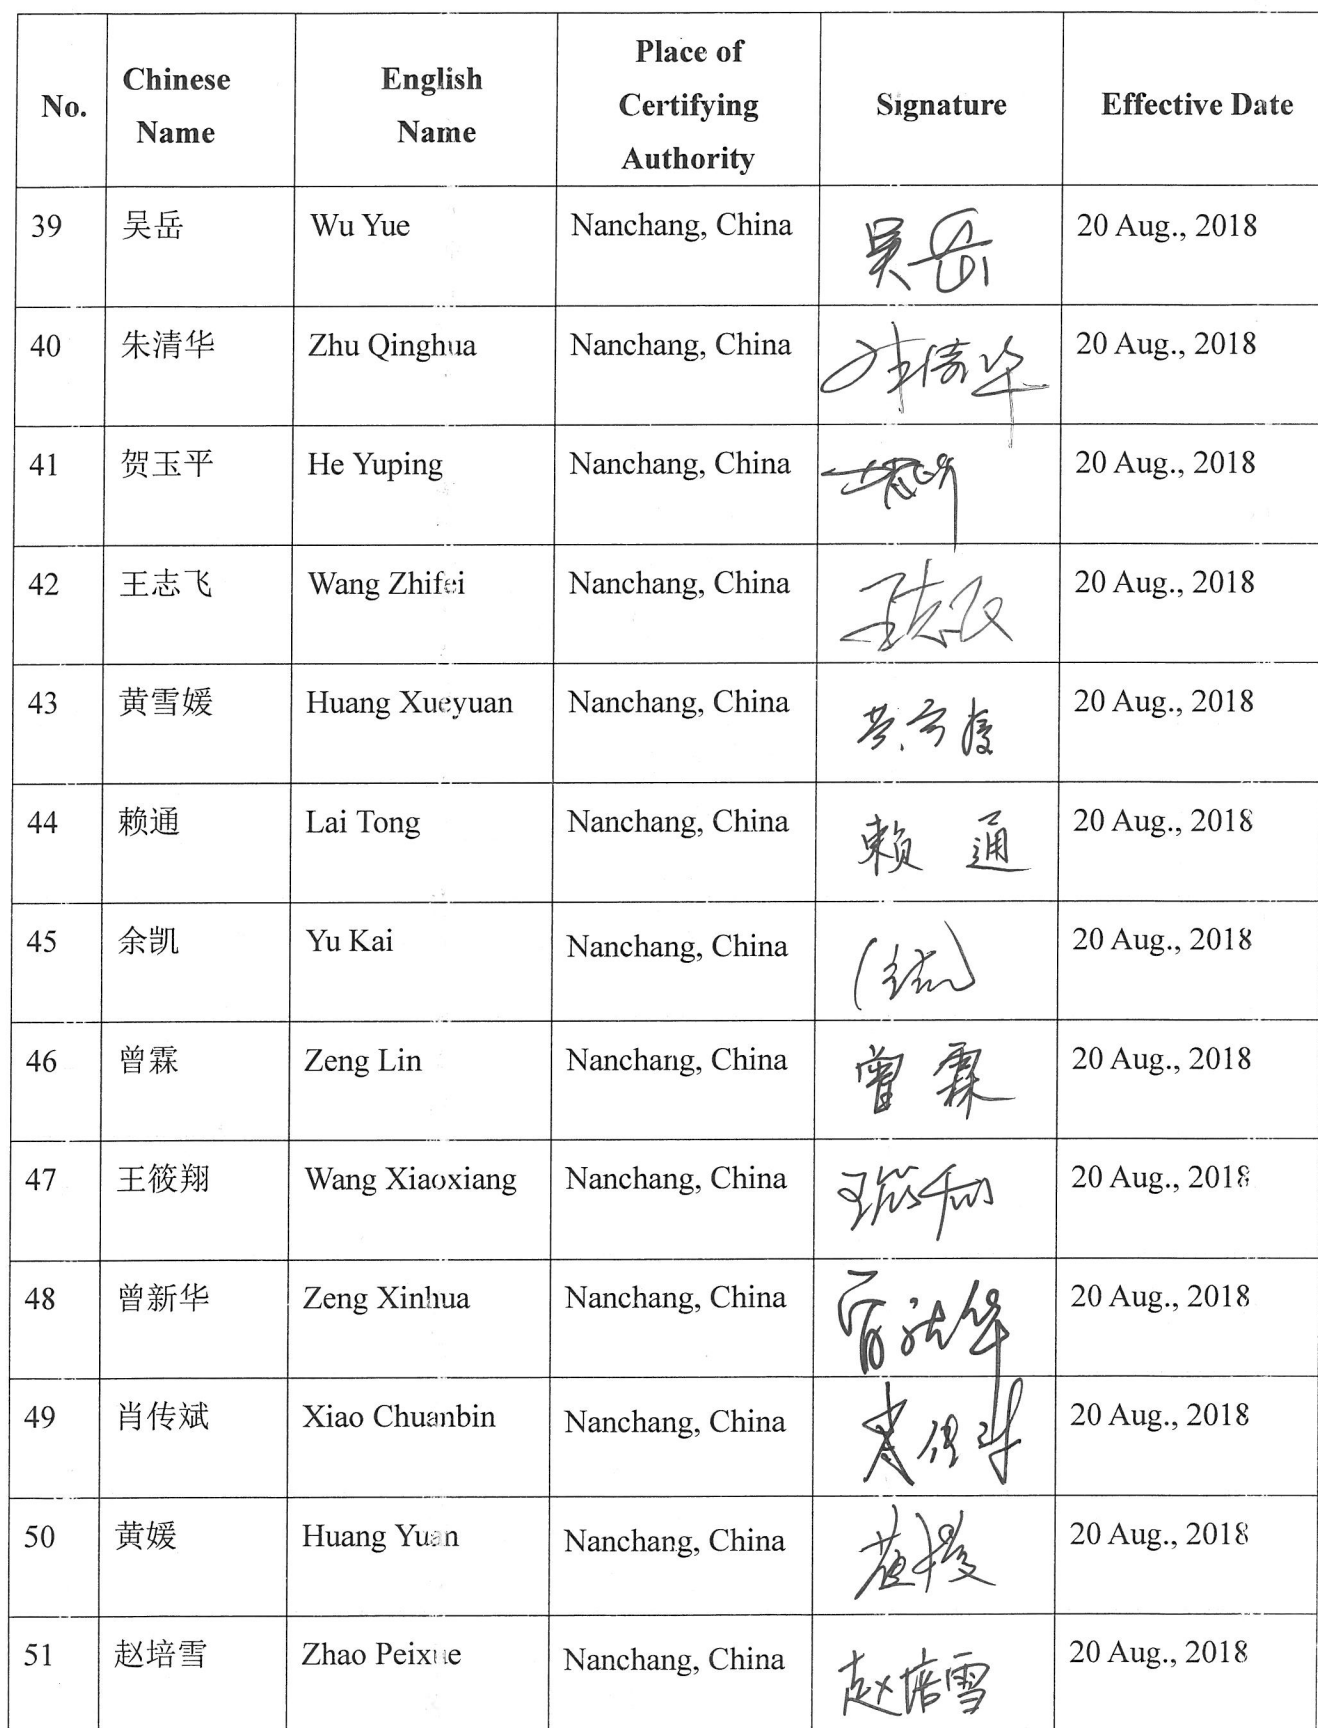 No.
Chinese Name
English Name
Place of Certifying Authority
Signature
Effective Date
39 吴岳 Wu Yue Nanchang, China 吴岳 20 Aug., 2018
40 朱清华 Zhu Qinghua Nanchang, China 20 Aug., 2018
41 贺玉平 He Yuping Nanchang, China 20 Aug., 2018
42 王志飞 Wang Zhifei Nanchang, China 20 Aug., 2018
43 黄雪媛 Huang Xueyuan Nanchang, China 20 Aug., 2018
44 赖通 Lai Tong Nanchang, China 赖通 20 Aug., 2018
45 余凯 Yu Kai Nanchang, China 20 Aug., 2018
46 曾霖 Zeng Lin Nanchang, China 曾霖 20 Aug., 2018
47 王筱翔 Wang Xiaoxiang Nanchang, China 20 Aug., 2018
48 曾新华 Zeng Xinhua Nanchang, China 20 Aug., 2018
49 肖传斌 Xiao Chuanbin Nanchang, China 20 Aug., 2018
50 黄媛 Huang Yuan Nanchang, China 20 Aug., 2018
51 赵培雪 Zhao Peixue Nanchang, China 赵培雪 20 Aug., 2018